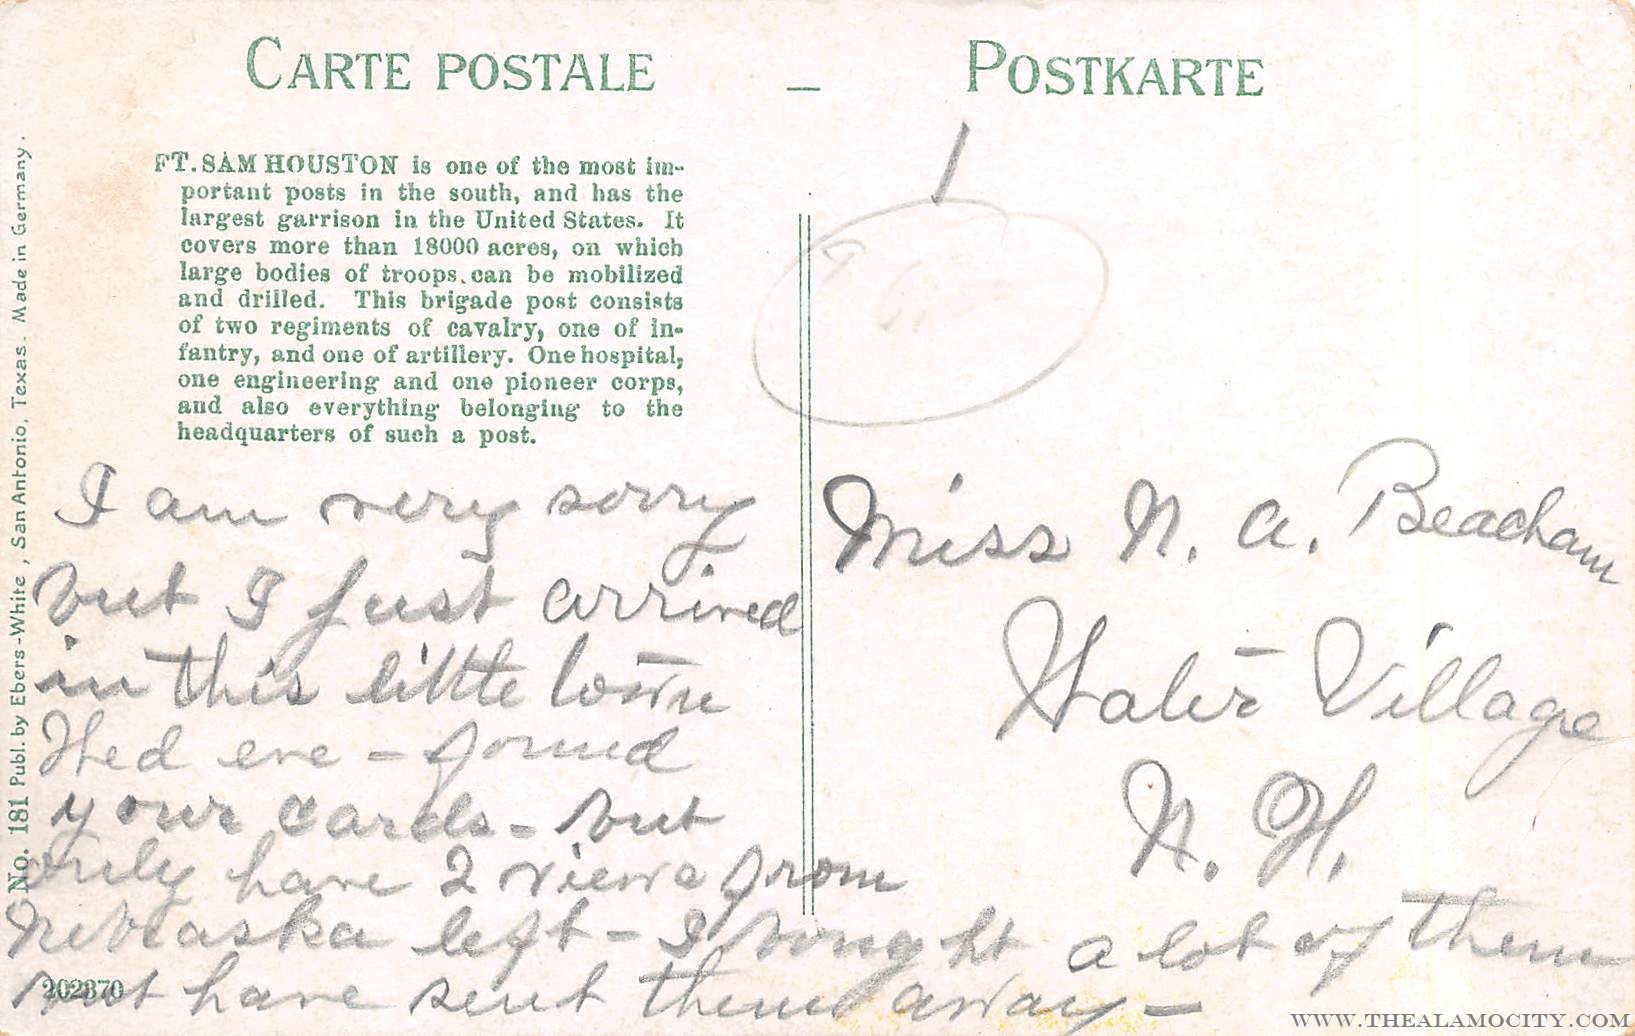 CARTE POSTALE – POSTKARTE
FT. SAM HOUSTON is one of the most im-
portant posts in the south, and has the
largest garrison in the United States. It
covers more than 18000 acres, on which
large bodies of troops can be mobilized
and drilled. This brigade post consists
of two regiments of cavalry, one of in-
fantry, and one of artillery. One hospital,
one engineering and one pioneer corps,
and also everything belonging to the
headquarters of such a post.
No. 181 Publ. by Ebers-White, San Antonio, Texas. Made in Germany.
I am very sorry
but I just arrived
in this little town
Wed eve - found
your cards - but
only have 2 views from
Nebraska left - I bought a lot of them
but have sent them away -
202870
1
Miss N. A. Beacham
Water Village
N. H.
WWW.THEALAMOCITY.COM